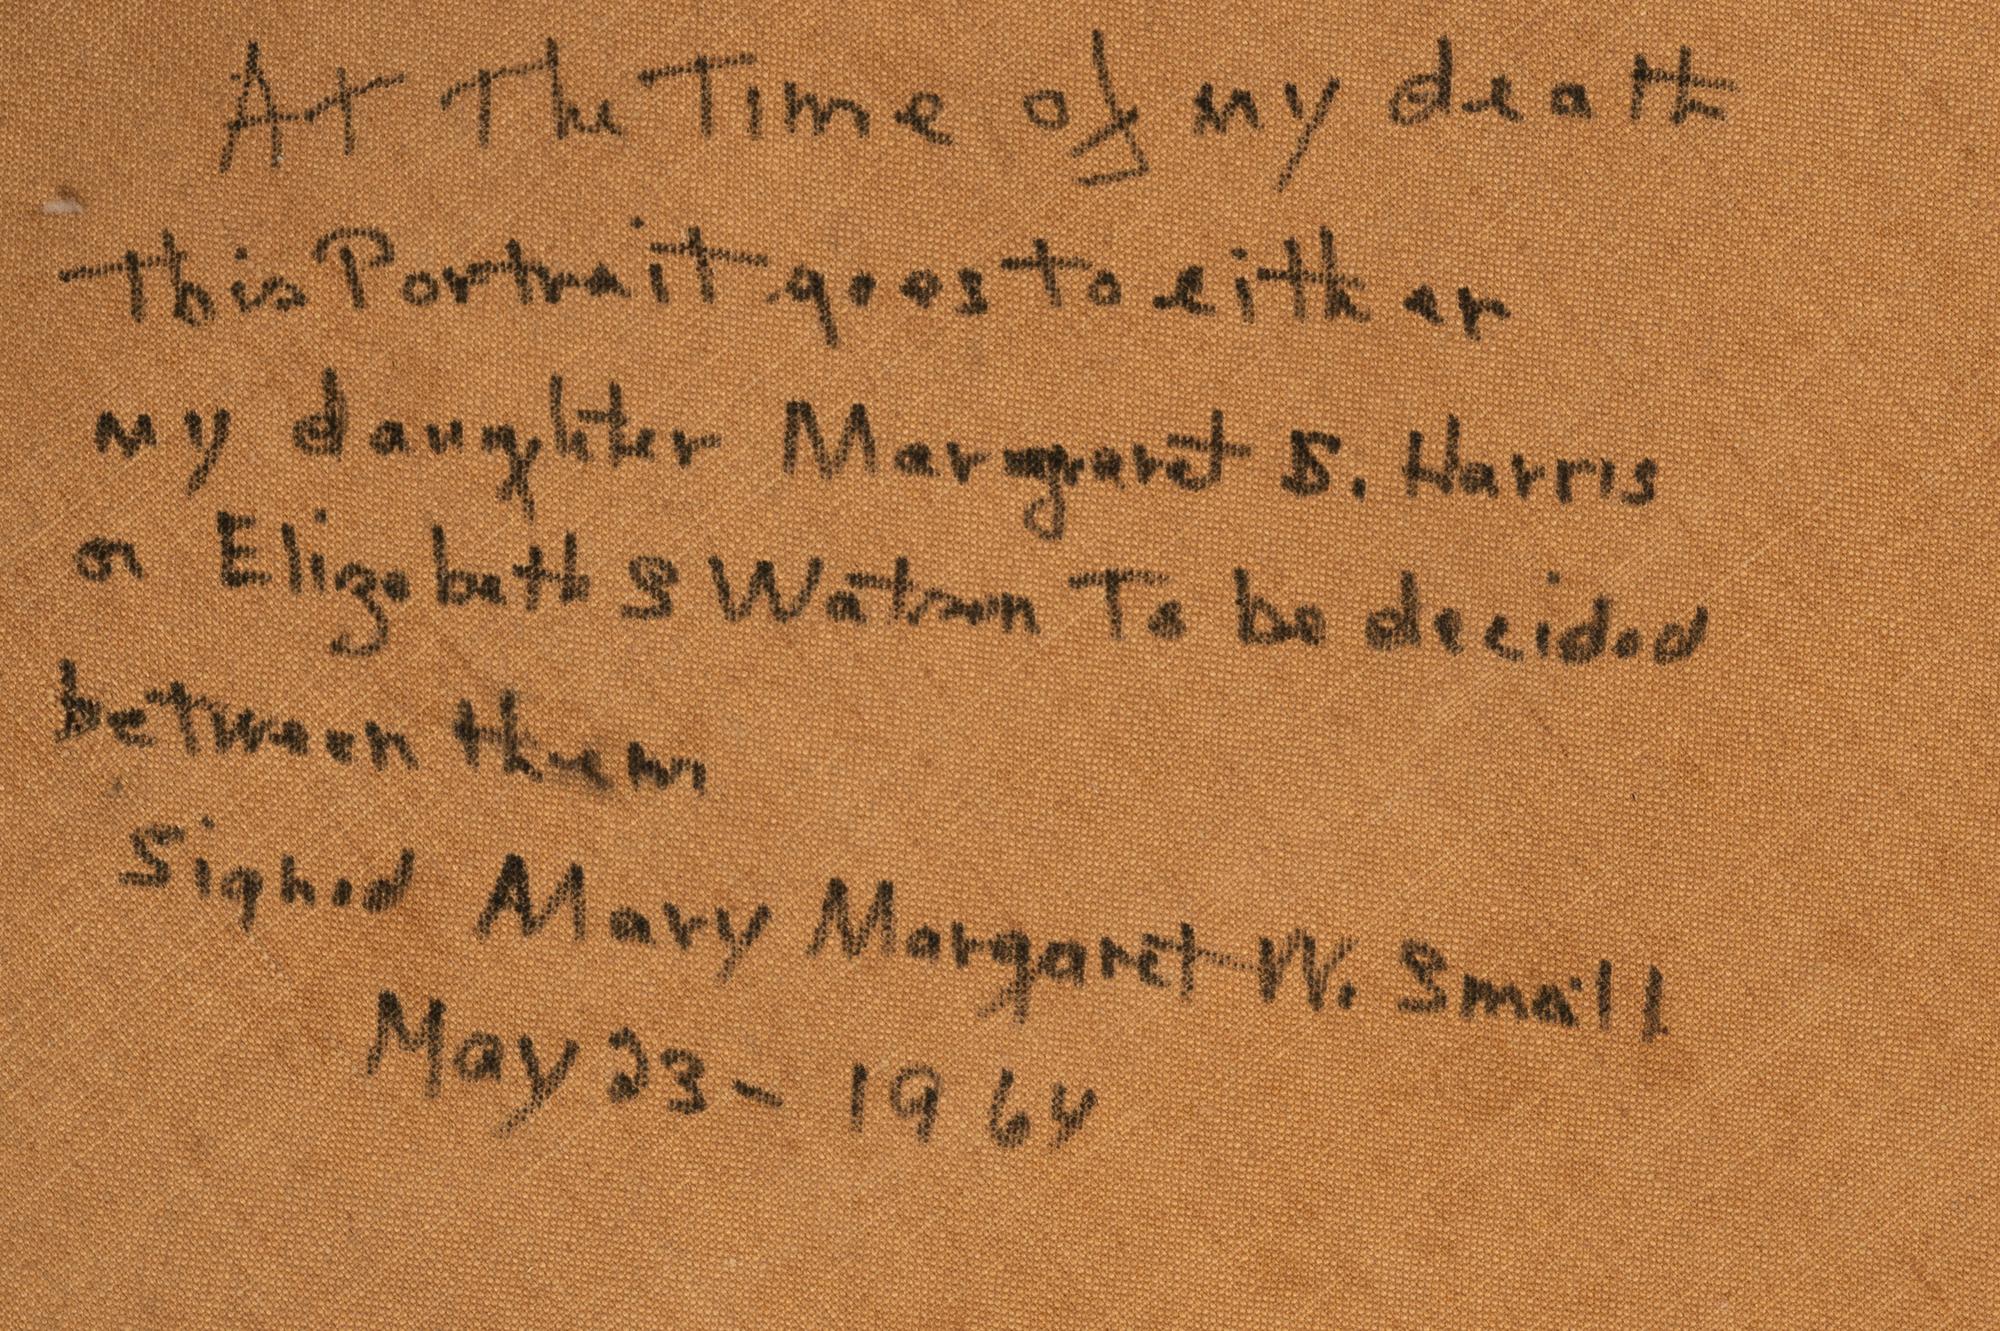 At The Time of my death
This Portrait goes to either
my daughter Margaret S. Harris
or Elizabeth S Watson To be decided
between them
Signed Mary Margaret W. Small
May 23 - 1964